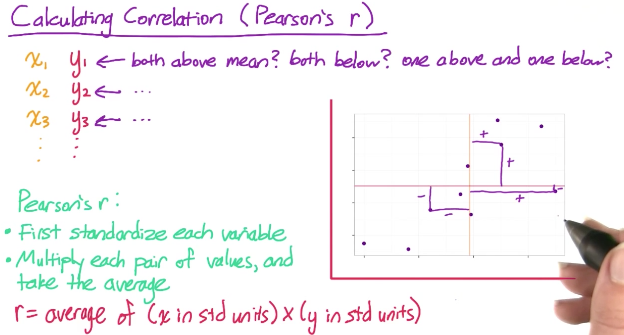 Calculating Correlation (Pearson's r)
x₁ y₁ ← both above mean? both below? one above and one below?
x₂ y₂ ← ...
x₃ y₃ ← ...
⋮ ⋮
+
+
-
-
+
-
Pearson's r:
• First standardize each variable
• Multiply each pair of values, and
take the average
r = average of (x in std units) × (y in std units)